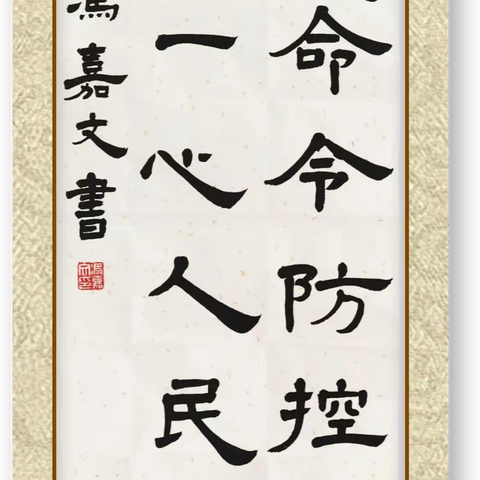 命令防控
一心人民
馮嘉文書